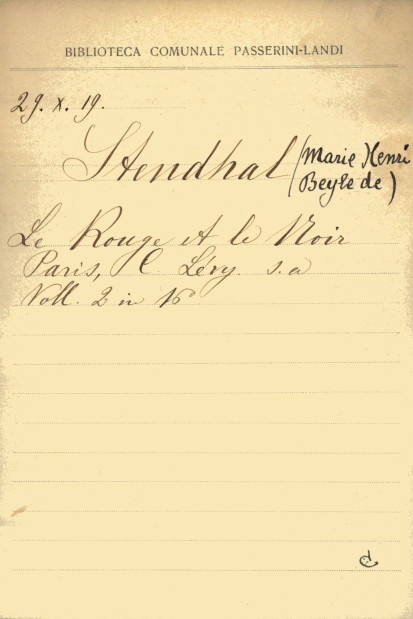 BIBLIOTECA COMUNALE PASSERINI-LANDI
29. X. 19.
Stendhal (Marie Henri
Beyle de)
Le Rouge et le Noir
Paris, C. Lévy s. a
Voll. 2 in 16°